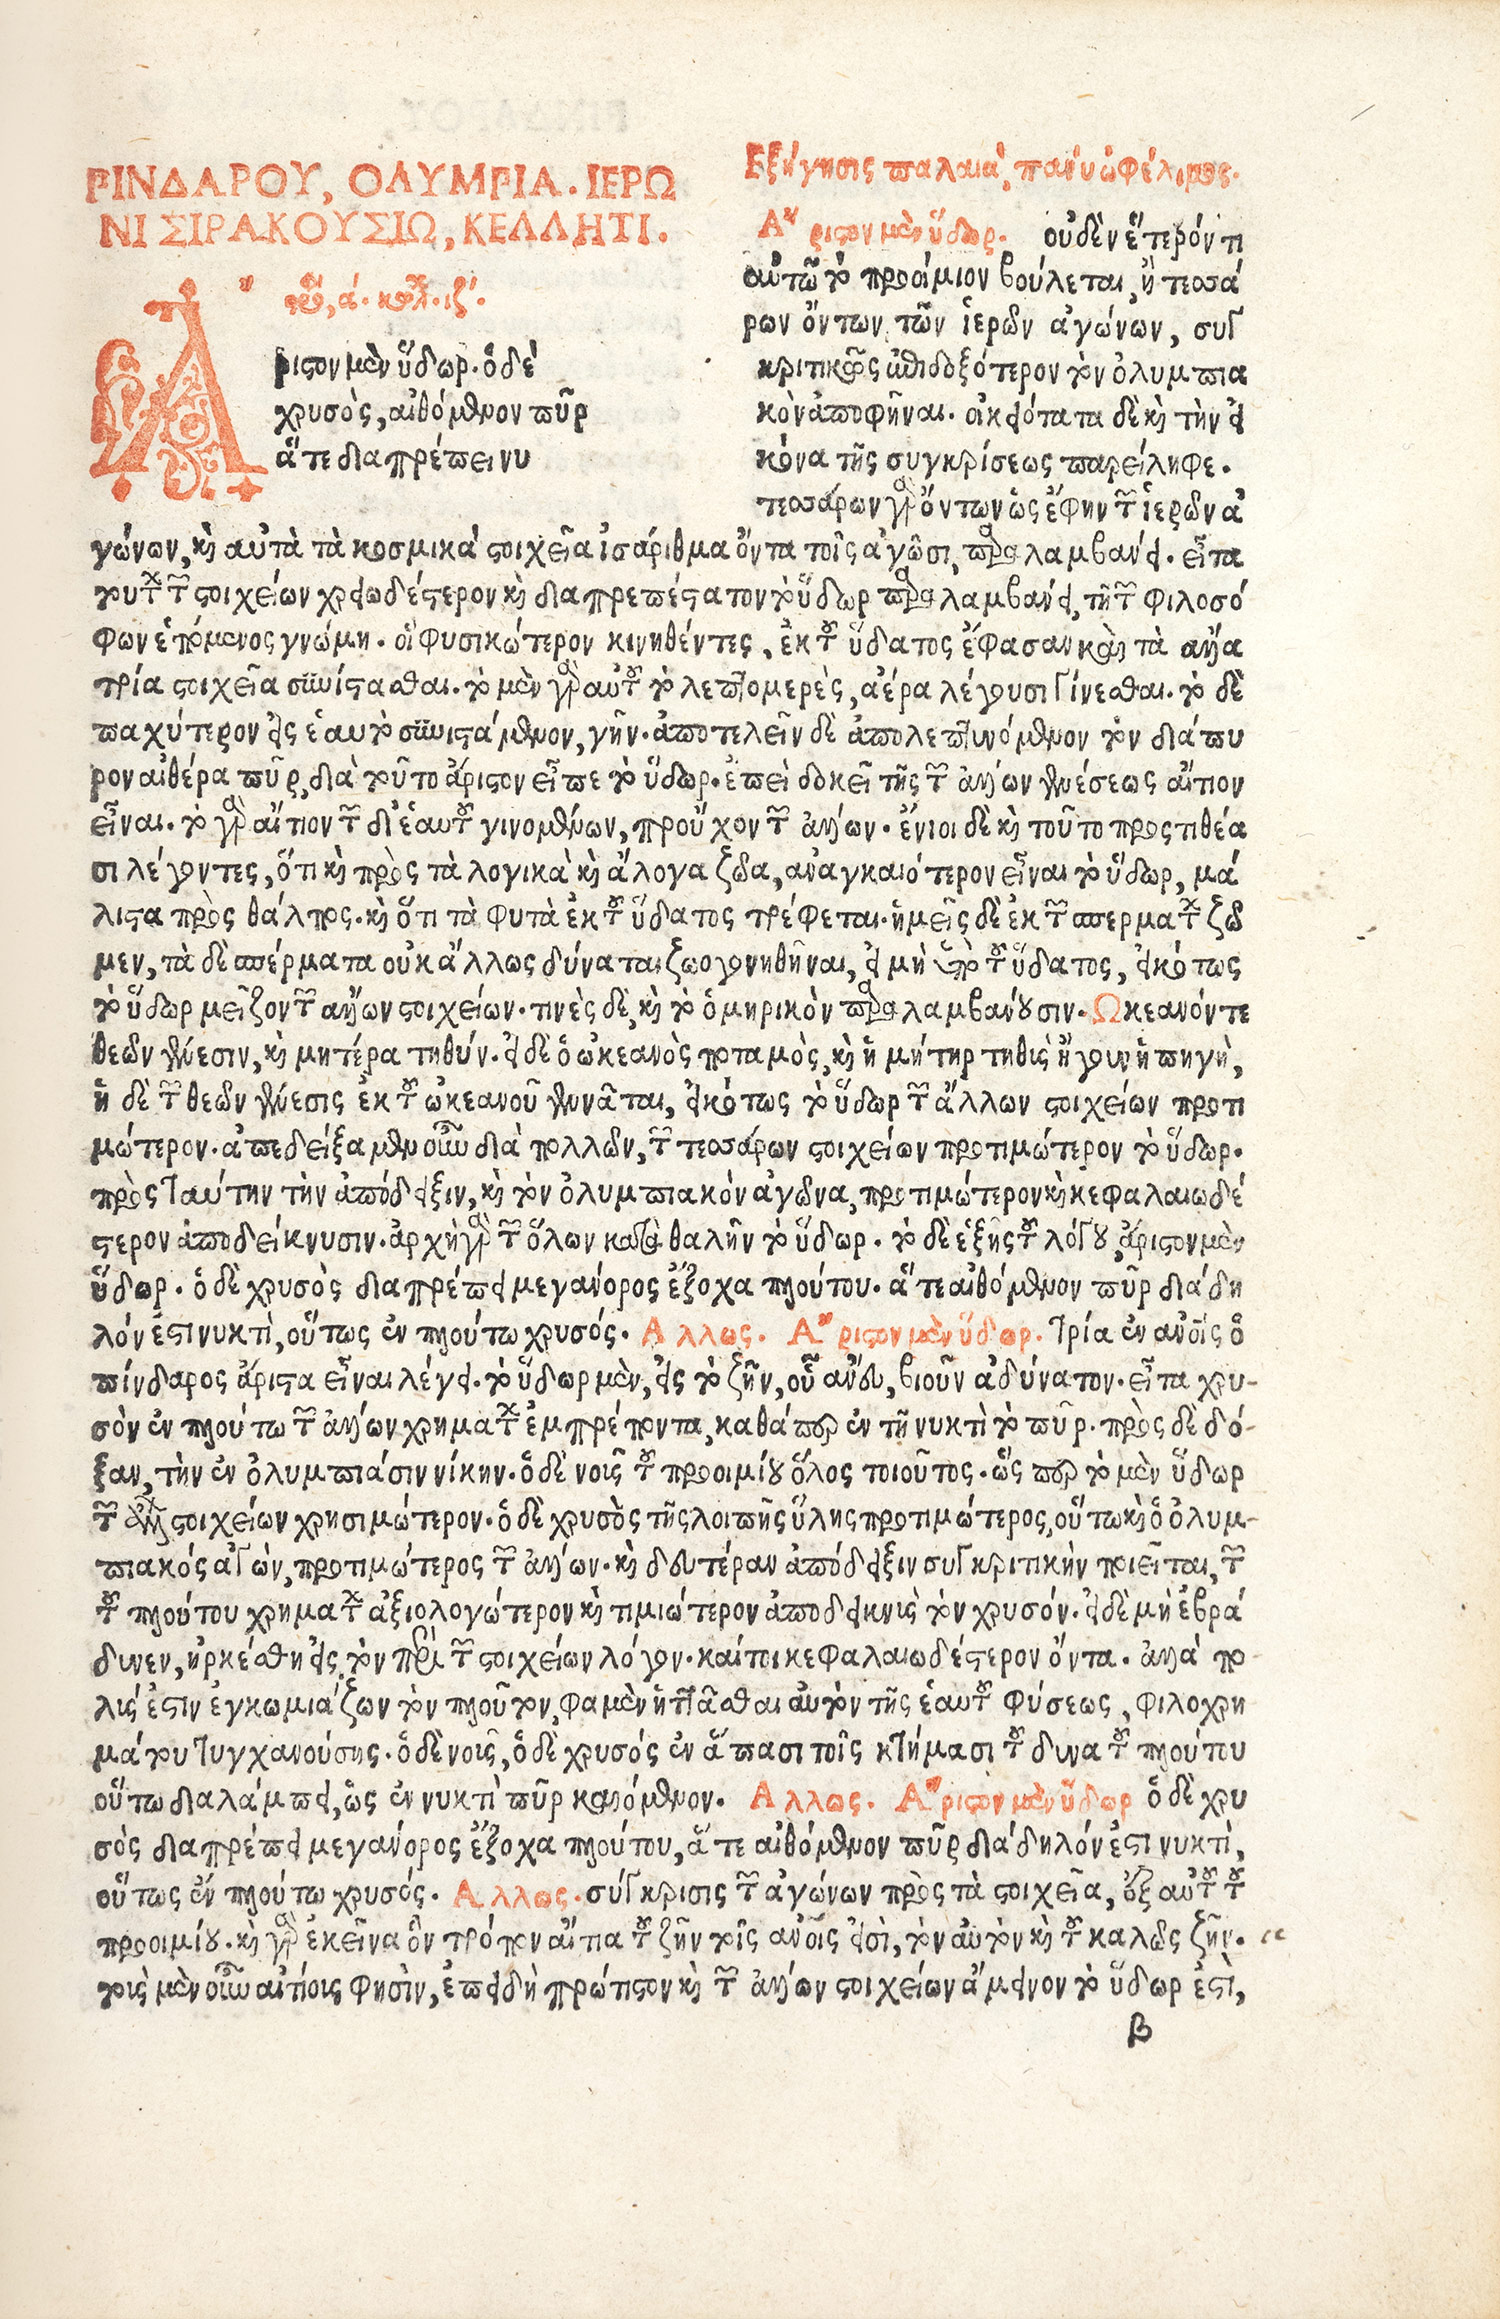 ΠΙΝΔΑΡΟΥ, ΟΛΥΜΠΙΑ. ΙΕΡΩ
ΝΙ ΣΙΡΑΚΟΥΣΙΩ, ΚΕΛΛΗΤΙ.
Ἄ
ριστον μὲν ὕδωρ. ὁ δὲ
χρυσὸς, αἰθόμενον πῦρ
ἅτε διαπρέπει νυ
Εξήγησις παλαιὰ, πάνυ ὠφέλιμος.
Ἄριστον μὲν ὕδωρ. οὐδὲν ἕτερόν τι
αὐτῶ τὸ προοίμιον βούλεται, ἢ τεσσά
ρων ὄντων τῶν ἱερῶν ἀγώνων, συγ
κριτικῶς ἐπιδοξότερον τὸν ὀλυμπια
κὸν ἀποφῆναι. οἰκειότατα δὲ καὶ τὴν εἰ
κόνα τῆς συγκρίσεως παρείληφε.
τεσσάρων γὰρ ὄντων ὡς ἔφην τῶν ἱερῶν ἀ
γώνων, καὶ αὐτὰ τὰ κοσμικὰ στοιχεῖα ἰσάριθμα ὄντα τοῖς ἀγῶσι, παραλαμβάνει. εἶτα
τούτων τῶν στοιχείων χρειωδέστερον καὶ διαπρεπέστατον τὸ ὕδωρ παραλαμβάνει, τῆ τῶν φιλοσό
φων ἑπόμενος γνώμη. οἱ φυσικώτερον κινηθέντες, ἐκ τοῦ ὕδατος ἔφασαν καὶ τὰ ἄλλα
τρία στοιχεῖα συνίστασθαι. τὸ μὲν γὰρ αὐτοῦ τὸ λεπτομερὲς, ἀέρα λέγουσι γίνεσθαι. τὸ δὲ
παχύτερον εἰς ἑαυτὸ συνιστάμενον, γῆν. ἀποτελεῖν δὲ ἀπολεπτυνόμενον τὸν διάπυ
ρον αἰθέρα πῦρ, διὰ τοῦτο ἄριστον εἶπε τὸ ὕδωρ. ἐπεὶ δοκεῖ τῆς τῶν ἄλλων γενέσεως αἴτιον
εἶναι. τὸ γὰρ αἴτιον τῶν δι' ἑαυτοῦ γινομένων, προὔχον τῶν ἄλλων. ἔνιοι δὲ καὶ τοῦτο προστιθέα
σι λέγοντες, ὅτι καὶ πρὸς τὰ λογικὰ καὶ ἄλογα ζῶα, ἀναγκαιότερον εἶναι τὸ ὕδωρ, μά
λιστα πρὸς θάλπος. καὶ ὅτι τὰ φυτὰ ἐκ τοῦ ὕδατος τρέφεται. ἡμεῖς δὲ ἐκ τῶν σπερμάτων ζῶ
μεν, τὰ δὲ σπέρματα οὐκ ἄλλως δύναται ζωογονηθῆναι, εἰ μὴ ὑπὸ τοῦ ὕδατος, εἰκότως
τὸ ὕδωρ μεῖζον τῶν ἄλλων στοιχείων. τινὲς δὲ, καὶ τὸ ὁμηρικὸν παραλαμβάνουσιν. Ωκεανόν τε
θεῶν γένεσιν, καὶ μητέρα τηθύν. εἰ δὲ ὁ ὠκεανὸς ποταμὸς, καὶ ἡ μήτηρ τηθὶς ἤγουν ἡ πηγὴ,
ἡ δὲ τῶν θεῶν γένεσις ἐκ τοῦ ὠκεανοῦ γεννᾶται, εἰκότως τὸ ὕδωρ τῶν ἄλλων στοιχείων προτι
μώτερον. ἀπεδείξαμεν οὖν διὰ πολλῶν, τῶν τεσσάρων στοιχείων προτιμώτερον τὸ ὕδωρ.
πρὸς ταύτην τὴν ἀπόδειξιν, καὶ τὸν ὀλυμπιακὸν ἀγῶνα, προτιμώτερον καὶ κεφαλαιωδέ
στερον ἀποδείκνυσιν. ἀρχὴ γὰρ τῶν ὅλων κατὰ θαλῆν τὸ ὕδωρ. τὸ δὲ ἑξῆς τοῦ λόγου, ἄριστον μὲν
ὕδωρ. ὁ δὲ χρυσὸς διαπρέπει μεγάνορος ἔξοχα πλούτου. ἅτε αἰθόμενον πῦρ διάδη
λόν ἐστι νυκτὶ, οὕτως ἐν πλούτω χρυσός. Αλλως. Ἄριστον μὲν ὕδωρ. Τρία ἐν ἀνοις ὁ
πίνδαρος ἄριστα εἶναι λέγει. τὸ ὕδωρ μὲν, εἰς τὸ ζῆν, οὗ ἄνευ, βιοῦν ἀδύνατον. εἶτα χρυ-
σὸν ἐν πλούτω τῶν ἄλλων χρημάτων ἐμπρέποντα, καθάπερ ἐν τῆ νυκτὶ τὸ πῦρ. πρὸς δὲ δό-
ξαν, τὴν ἐν ὀλυμπιάσιν νίκην. ὁ δὲ νοῦς τοῦ προοιμίου ὅλος τοιοῦτος. ὥσπερ τὸ μὲν ὕδωρ
τῶν ἄλλων στοιχείων χρησιμώτερον. ὁ δὲ χρυσὸς τῆς λοιπῆς ὕλης προτιμώτερος, οὕτω καὶ ὁ ὀλυμ-
πιακὸς ἀγὼν, προτιμώτερος τῶν ἄλλων. καὶ δευτέραν ἀπόδειξιν συγκριτικὴν ποιεῖται, τῶν
τοῦ πλούτου χρημάτων ἀξιολογώτερον καὶ τιμιώτερον ἀποδεικνὺς τὸν χρυσόν. εἰ δὲ μὴ ἐβρά
δυνεν, ἠρκέσθη εἰς τὸν περὶ τῶν στοιχείων λόγον. καίτοι κεφαλαιωδέστερον ὄντα. ἀλλὰ πο
λύς ἐστιν ἐγκωμιάζων τὸν πλοῦτον, φαμὲν ἡττᾶσθαι αὐτὸν τῆς ἑαυτοῦ φύσεως, φιλοχρη
μάτου τυγχανούσης. ὁ δὲ νοῦς, ὁ δὲ χρυσὸς ἐν ἅπασι τοῖς κτήμασι τοῦ δυνατοῦ πλούτου
οὕτω διαλάμπει, ὡς ἐν νυκτὶ πῦρ καιόμενον. Αλλως. Ἄριστον μὲν ὕδωρ ὁ δὲ χρυ
σὸς διαπρέπει μεγάνορος ἔξοχα πλούτου, ἅτε αἰθόμενον πῦρ διάδηλόν ἐστι νυκτὶ,
οὕτως ἐν πλούτω χρυσός. Αλλως. σύγκρισις τῶν ἀγώνων πρὸς τὰ στοιχεῖα, ἐξ αὐτοῦ τοῦ
προοιμίου. καὶ γὰρ ἐκεῖνα ὃν τρόπον αἴτια τοῦ ζῆν τοῖς ἀνοις εἰσὶ, τὸν αὐτὸν καὶ τοῦ καλῶς ζῆν.
τοῖς μὲν οὖν αἰτίοις φησὶν, ἐπειδὴ πρώτιστον καὶ τῶν ἄλλων στοιχείων ἄμεινον τὸ ὕδωρ ἐστὶ,
β